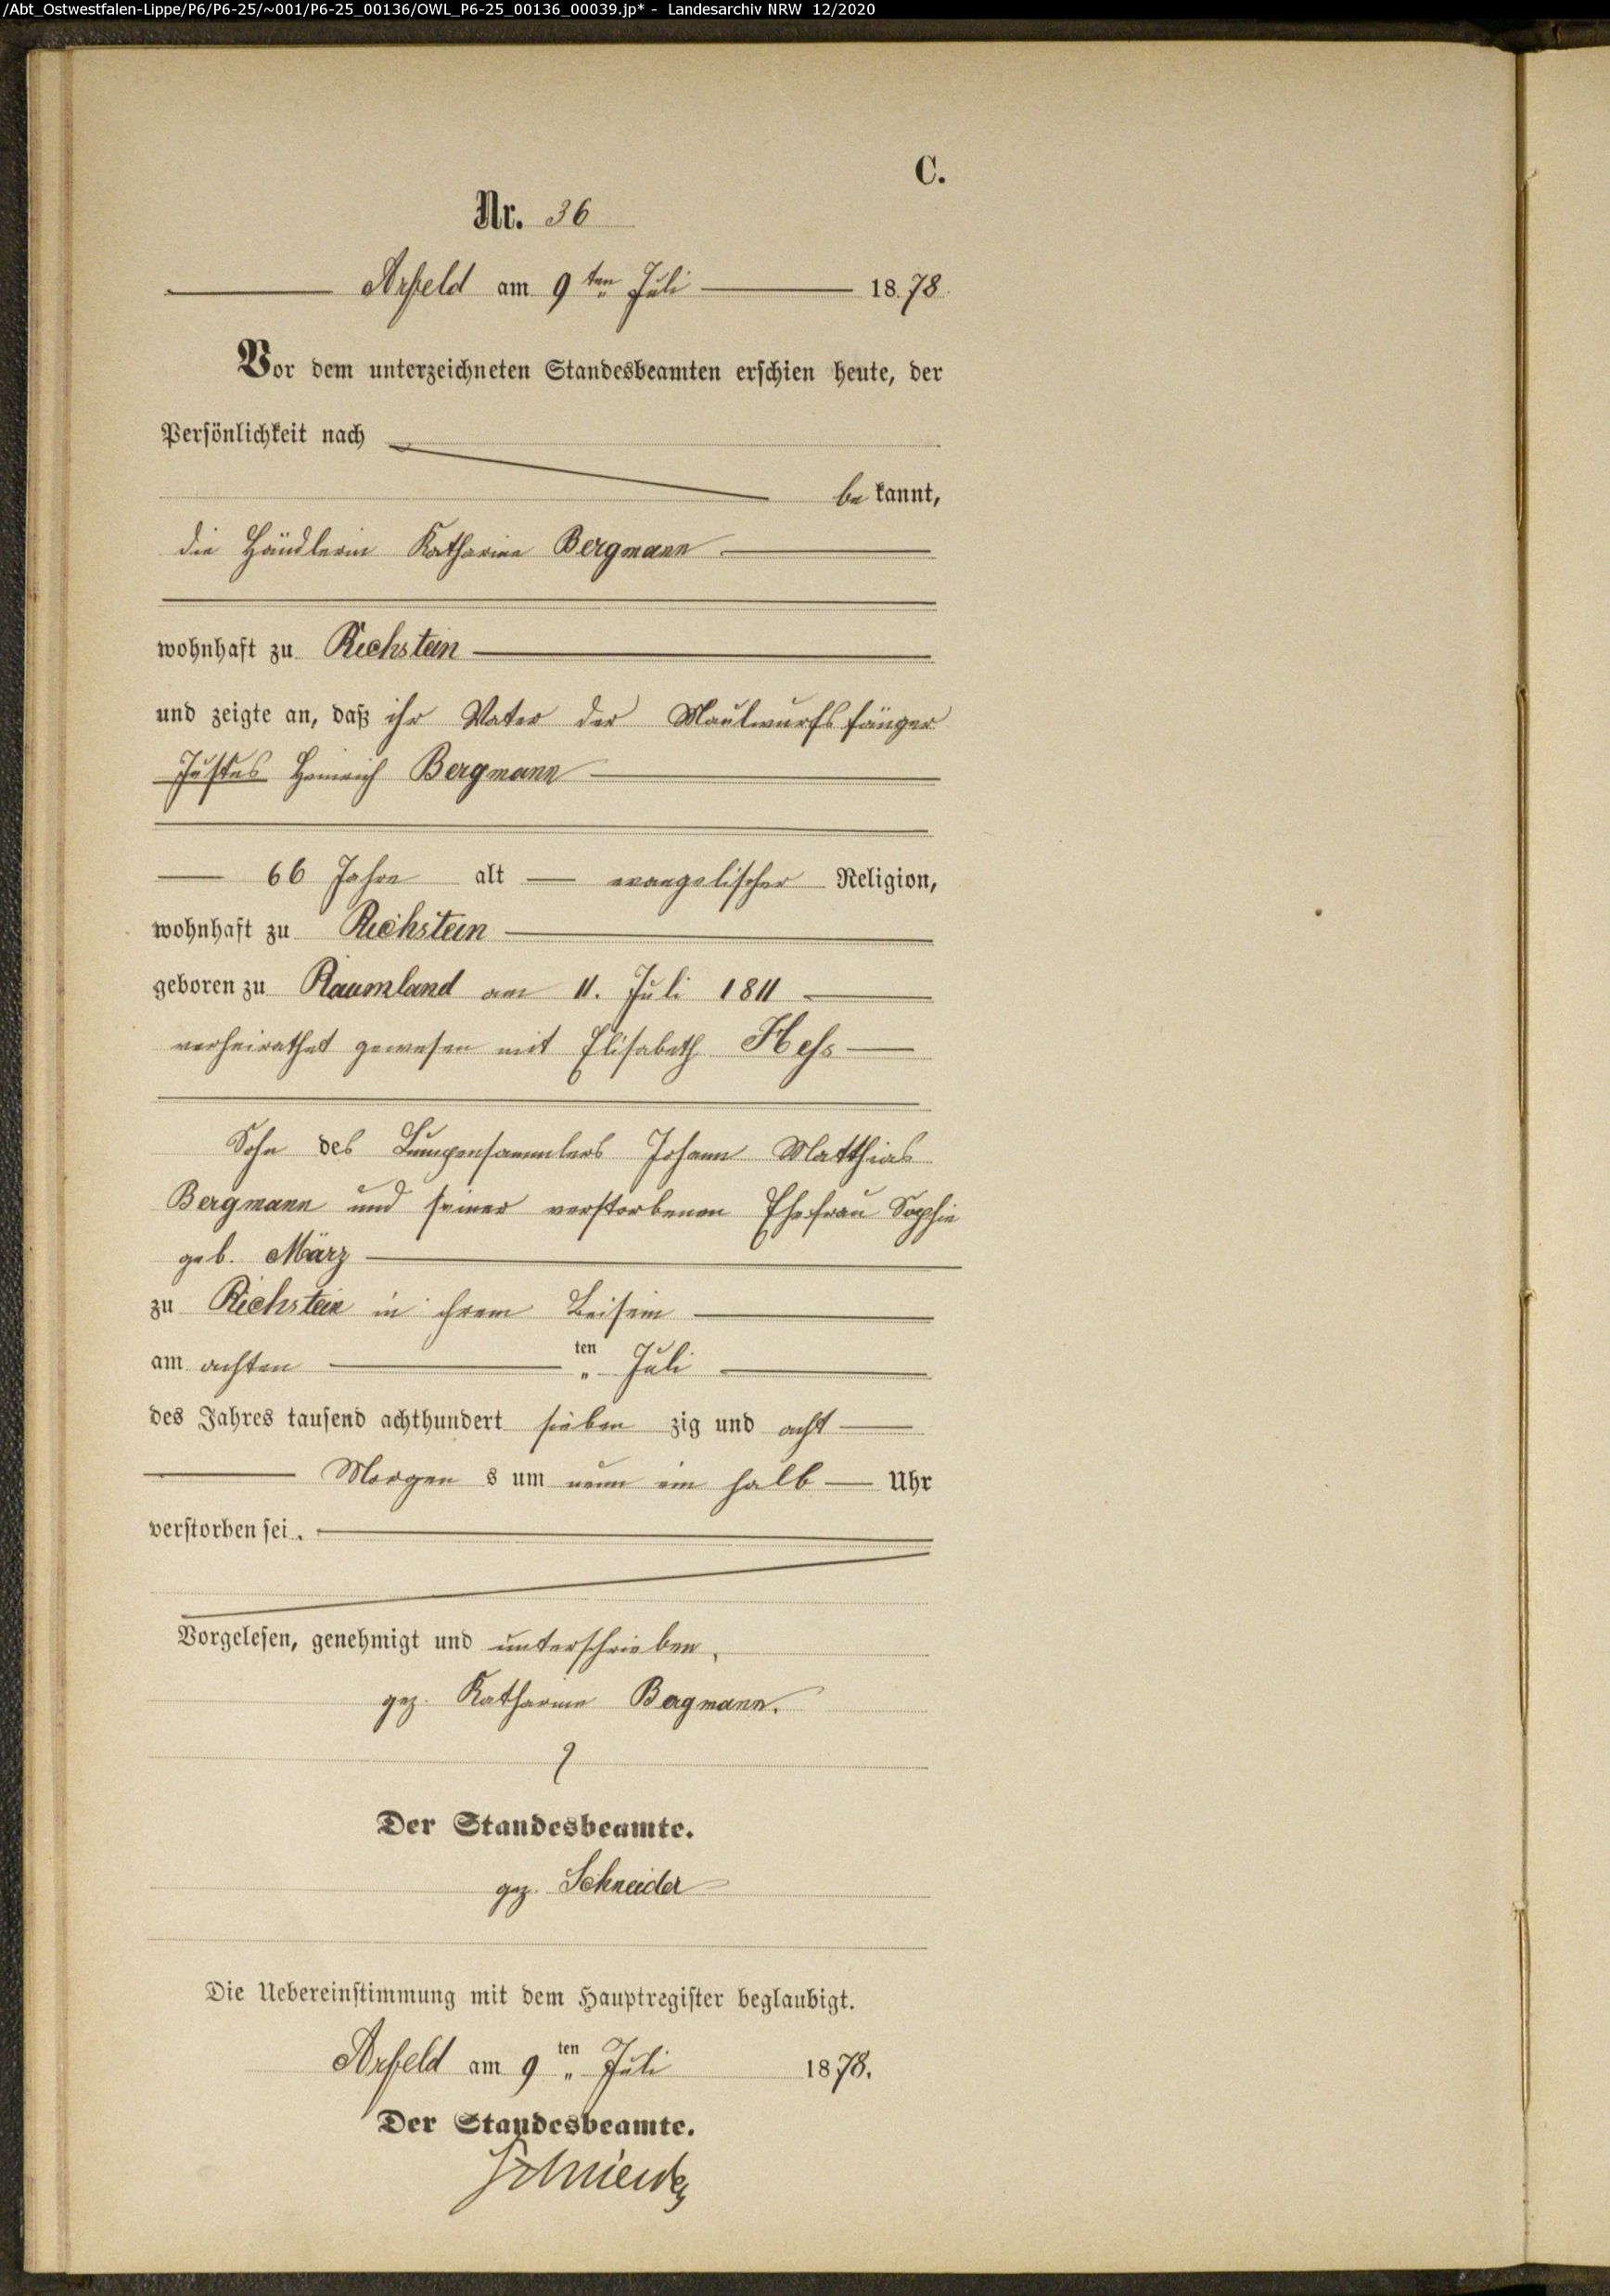 /Abt_Ostwestfalen-Lippe/P6/P6-25/~001/P6-25_00136/OWL_P6-25_00136_00039.jp* - Landesarchiv NRW 12/2020
C.
Nr. 36
Arfeld am 9ten Juli 1878
Vor dem unterzeichneten Standesbeamten erschien heute, der
Persönlichkeit nach
bekannt,
die Händlerin Katharine Bergmann
wohnhaft zu Richstein
und zeigte an, daß ihr Vater der Maulwurfsfänger
Justus Heinrich Bergmann
66 Jahre alt evangelischer Religion,
wohnhaft zu Richstein
geboren zu Raumland am 11. Juli 1811
verheirathet gewesen mit Elisabeth Heß
Sohn des Lumpensammlers Johann Matthias
Bergmann und seiner verstorbenen Ehefrau Sophie
geb. März
zu Richstein in ihrem Beisein
am achten ten Juli
des Jahres tausend achthundert sieben zig und acht
Morgen s um neun ein halb Uhr
verstorben sei.
Vorgelesen, genehmigt und unterschrieben,
gez. Katharine Bergmann.
Der Standesbeamte.
gez. Schneider
Die Uebereinstimmung mit dem Hauptregister beglaubigt.
Arfeld am 9ten Juli 1878.
Der Standesbeamte.
Schneider